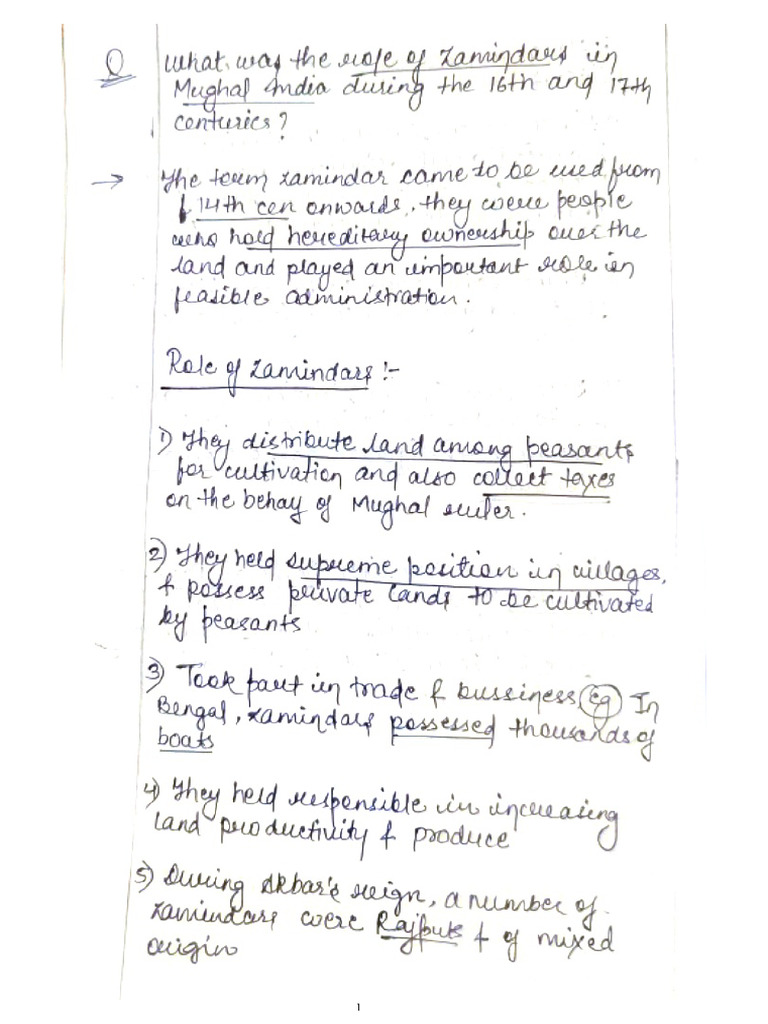 Q What was the role of Zamindars in
Mughal India during the 16th and 17th
centuries?
→ The term zamindar came to be used from
f 14th cen onwards, they were people
who hold hereditary ownership over the
land and played an important role in
feasible administration.
Role of Zamindars :-
1) They distribute land among peasants
for cultivation and also collect taxes
on the behay of Mughal ruler.
2) They held supreme position in villages,
& possess private lands to be cultivated
by peasants
3) Took part in trade & bussiness Eg In
Bengal, zamindars possessed thousands of
boats
4) They held responsible in increasing
land productivity & produce
5) During Akbar's reign, a number of
zamindars were Rajputs & of mixed
origin
1